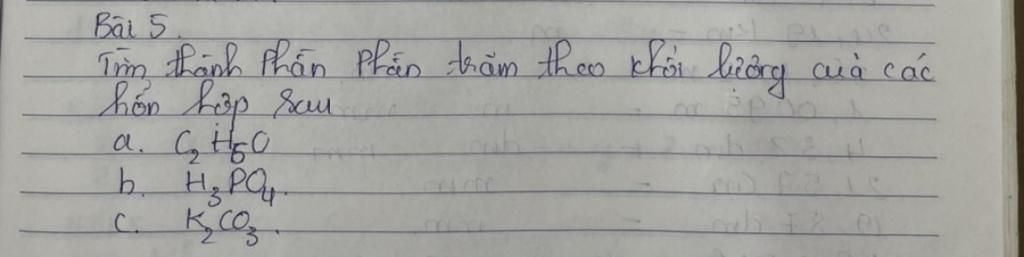 Bài 5.
Tìm thành phần phần trăm theo khối lượng của các
hỗn hợp sau
a. C₂H₅O
b. H₃PO₄.
c. K₂CO₃.